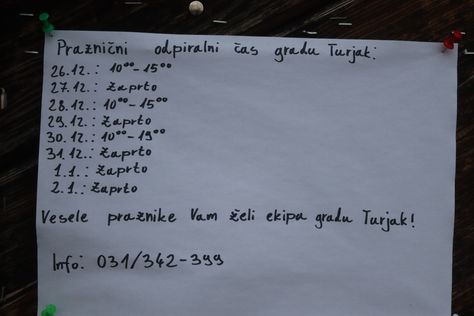 Praznični odpiralni čas gradu Turjak:
26.12.: 10⁰⁰-15⁰⁰
27.12.: zaprto
28.12.: 10⁰⁰-15⁰⁰
29.12.: zaprto
30.12.: 10⁰⁰-19⁰⁰
31.12.: zaprto
1.1.: zaprto
2.1.: zaprto
Vesele praznike Vam želi ekipa gradu Turjak!
Info: 031/342-399